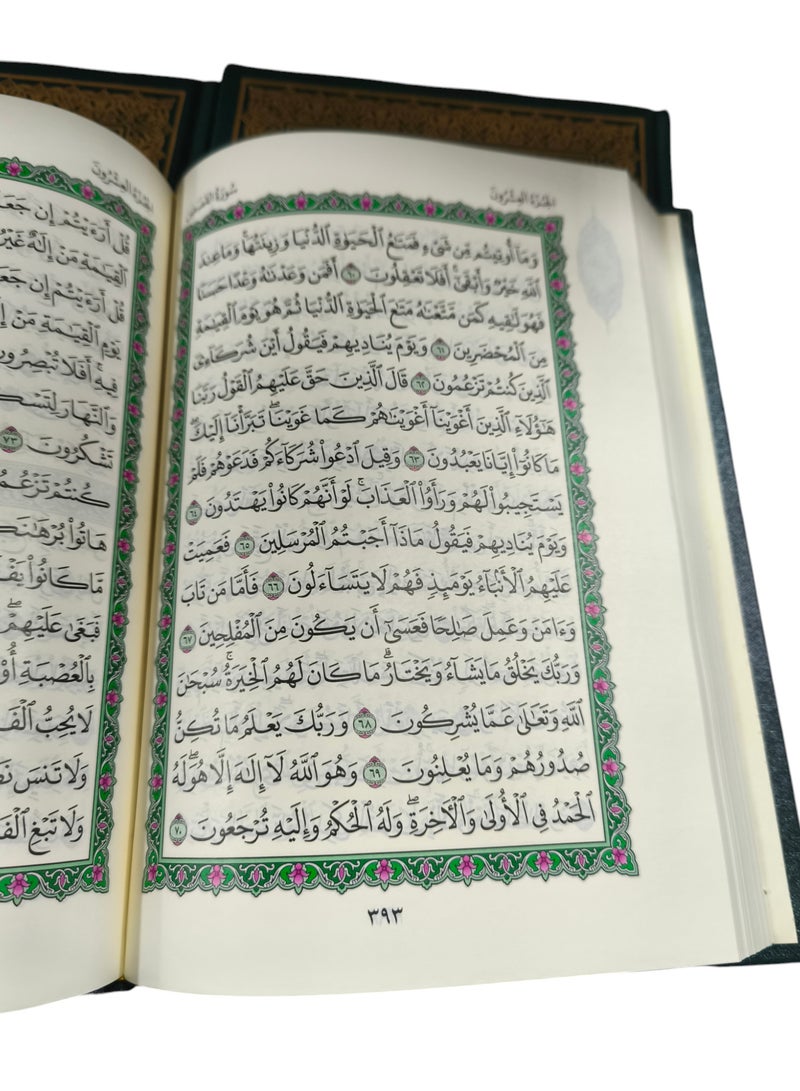 الجزء العشرون
سورة القصص
وَمَآ أُوتِيتُم مِّن شَىْءٍ فَمَتَٰعُ ٱلْحَيَوٰةِ ٱلدُّنْيَا وَزِينَتُهَا ۚ وَمَا عِندَ
ٱللَّهِ خَيْرٌ وَأَبْقَىٰٓ ۚ أَفَلَا تَعْقِلُونَ ٦٠ أَفَمَن وَعَدْنَٰهُ وَعْدًا حَسَنًا
فَهُوَ لَٰقِيهِ كَمَن مَّتَّعْنَٰهُ مَتَٰعَ ٱلْحَيَوٰةِ ٱلدُّنْيَا ثُمَّ هُوَ يَوْمَ ٱلْقِيَٰمَةِ
مِنَ ٱلْمُحْضَرِينَ ٦١ وَيَوْمَ يُنَادِيهِمْ فَيَقُولُ أَيْنَ شُرَكَآءِىَ
ٱلَّذِينَ كُنتُمْ تَزْعُمُونَ ٦٢ قَالَ ٱلَّذِينَ حَقَّ عَلَيْهِمُ ٱلْقَوْلُ رَبَّنَا
هَٰٓؤُلَآءِ ٱلَّذِينَ أَغْوَيْنَآ أَغْوَيْنَٰهُمْ كَمَا غَوَيْنَا ۖ تَبَرَّأْنَآ إِلَيْكَ ۖ
مَا كَانُوٓا۟ إِيَّانَا يَعْبُدُونَ ٦٣ وَقِيلَ ٱدْعُوا۟ شُرَكَآءَكُمْ فَدَعَوْهُمْ فَلَمْ
يَسْتَجِيبُوا۟ لَهُمْ وَرَأَوُا۟ ٱلْعَذَابَ ۚ لَوْ أَنَّهُمْ كَانُوا۟ يَهْتَدُونَ ٦٤
وَيَوْمَ يُنَادِيهِمْ فَيَقُولُ مَاذَآ أَجَبْتُمُ ٱلْمُرْسَلِينَ ٦٥ فَعَمِيَتْ
عَلَيْهِمُ ٱلْأَنۢبَآءُ يَوْمَئِذٍ فَهُمْ لَا يَتَسَآءَلُونَ ٦٦ فَأَمَّا مَن تَابَ
وَءَامَنَ وَعَمِلَ صَٰلِحًا فَعَسَىٰٓ أَن يَكُونَ مِنَ ٱلْمُفْلِحِينَ ٦٧
وَرَبُّكَ يَخْلُقُ مَا يَشَآءُ وَيَخْتَارُ ۗ مَا كَانَ لَهُمُ ٱلْخِيَرَةُ ۚ سُبْحَٰنَ
ٱللَّهِ وَتَعَٰلَىٰ عَمَّا يُشْرِكُونَ ٦٨ وَرَبُّكَ يَعْلَمُ مَا تُكِنُّ
صُدُورُهُمْ وَمَا يُعْلِنُونَ ٦٩ وَهُوَ ٱللَّهُ لَآ إِلَٰهَ إِلَّا هُوَ ۖ لَهُ
ٱلْحَمْدُ فِى ٱلْأُولَىٰ وَٱلْءَاخِرَةِ ۖ وَلَهُ ٱلْحُكْمُ وَإِلَيْهِ تُرْجَعُونَ ٧٠
٣٩٣
الجزء العشرون
قُلْ أَرَءَيْتُمْ إِن جَعَلَ
ٱلْقِيَٰمَةِ مَنْ إِلَٰهٌ غَيْرُ
قُلْ أَرَءَيْتُمْ إِن جَعَلَ
يَوْمِ ٱلْقِيَٰمَةِ مَنْ
فِيهِ ۖ أَفَلَا تُبْصِرُونَ
وَٱلنَّهَارَ
تَشْكُرُونَ ٧٣
كُنتُمْ تَزْعُمُونَ
هَاتُوا۟ بُرْهَٰنَكُمْ
مَّا كَانُوا۟
فَبَغَىٰ عَلَيْهِمْ ۖ
بِٱلْعُصْبَةِ
لَا يُحِبُّ
وَلَا تَنسَ
وَلَا تَبْغِ